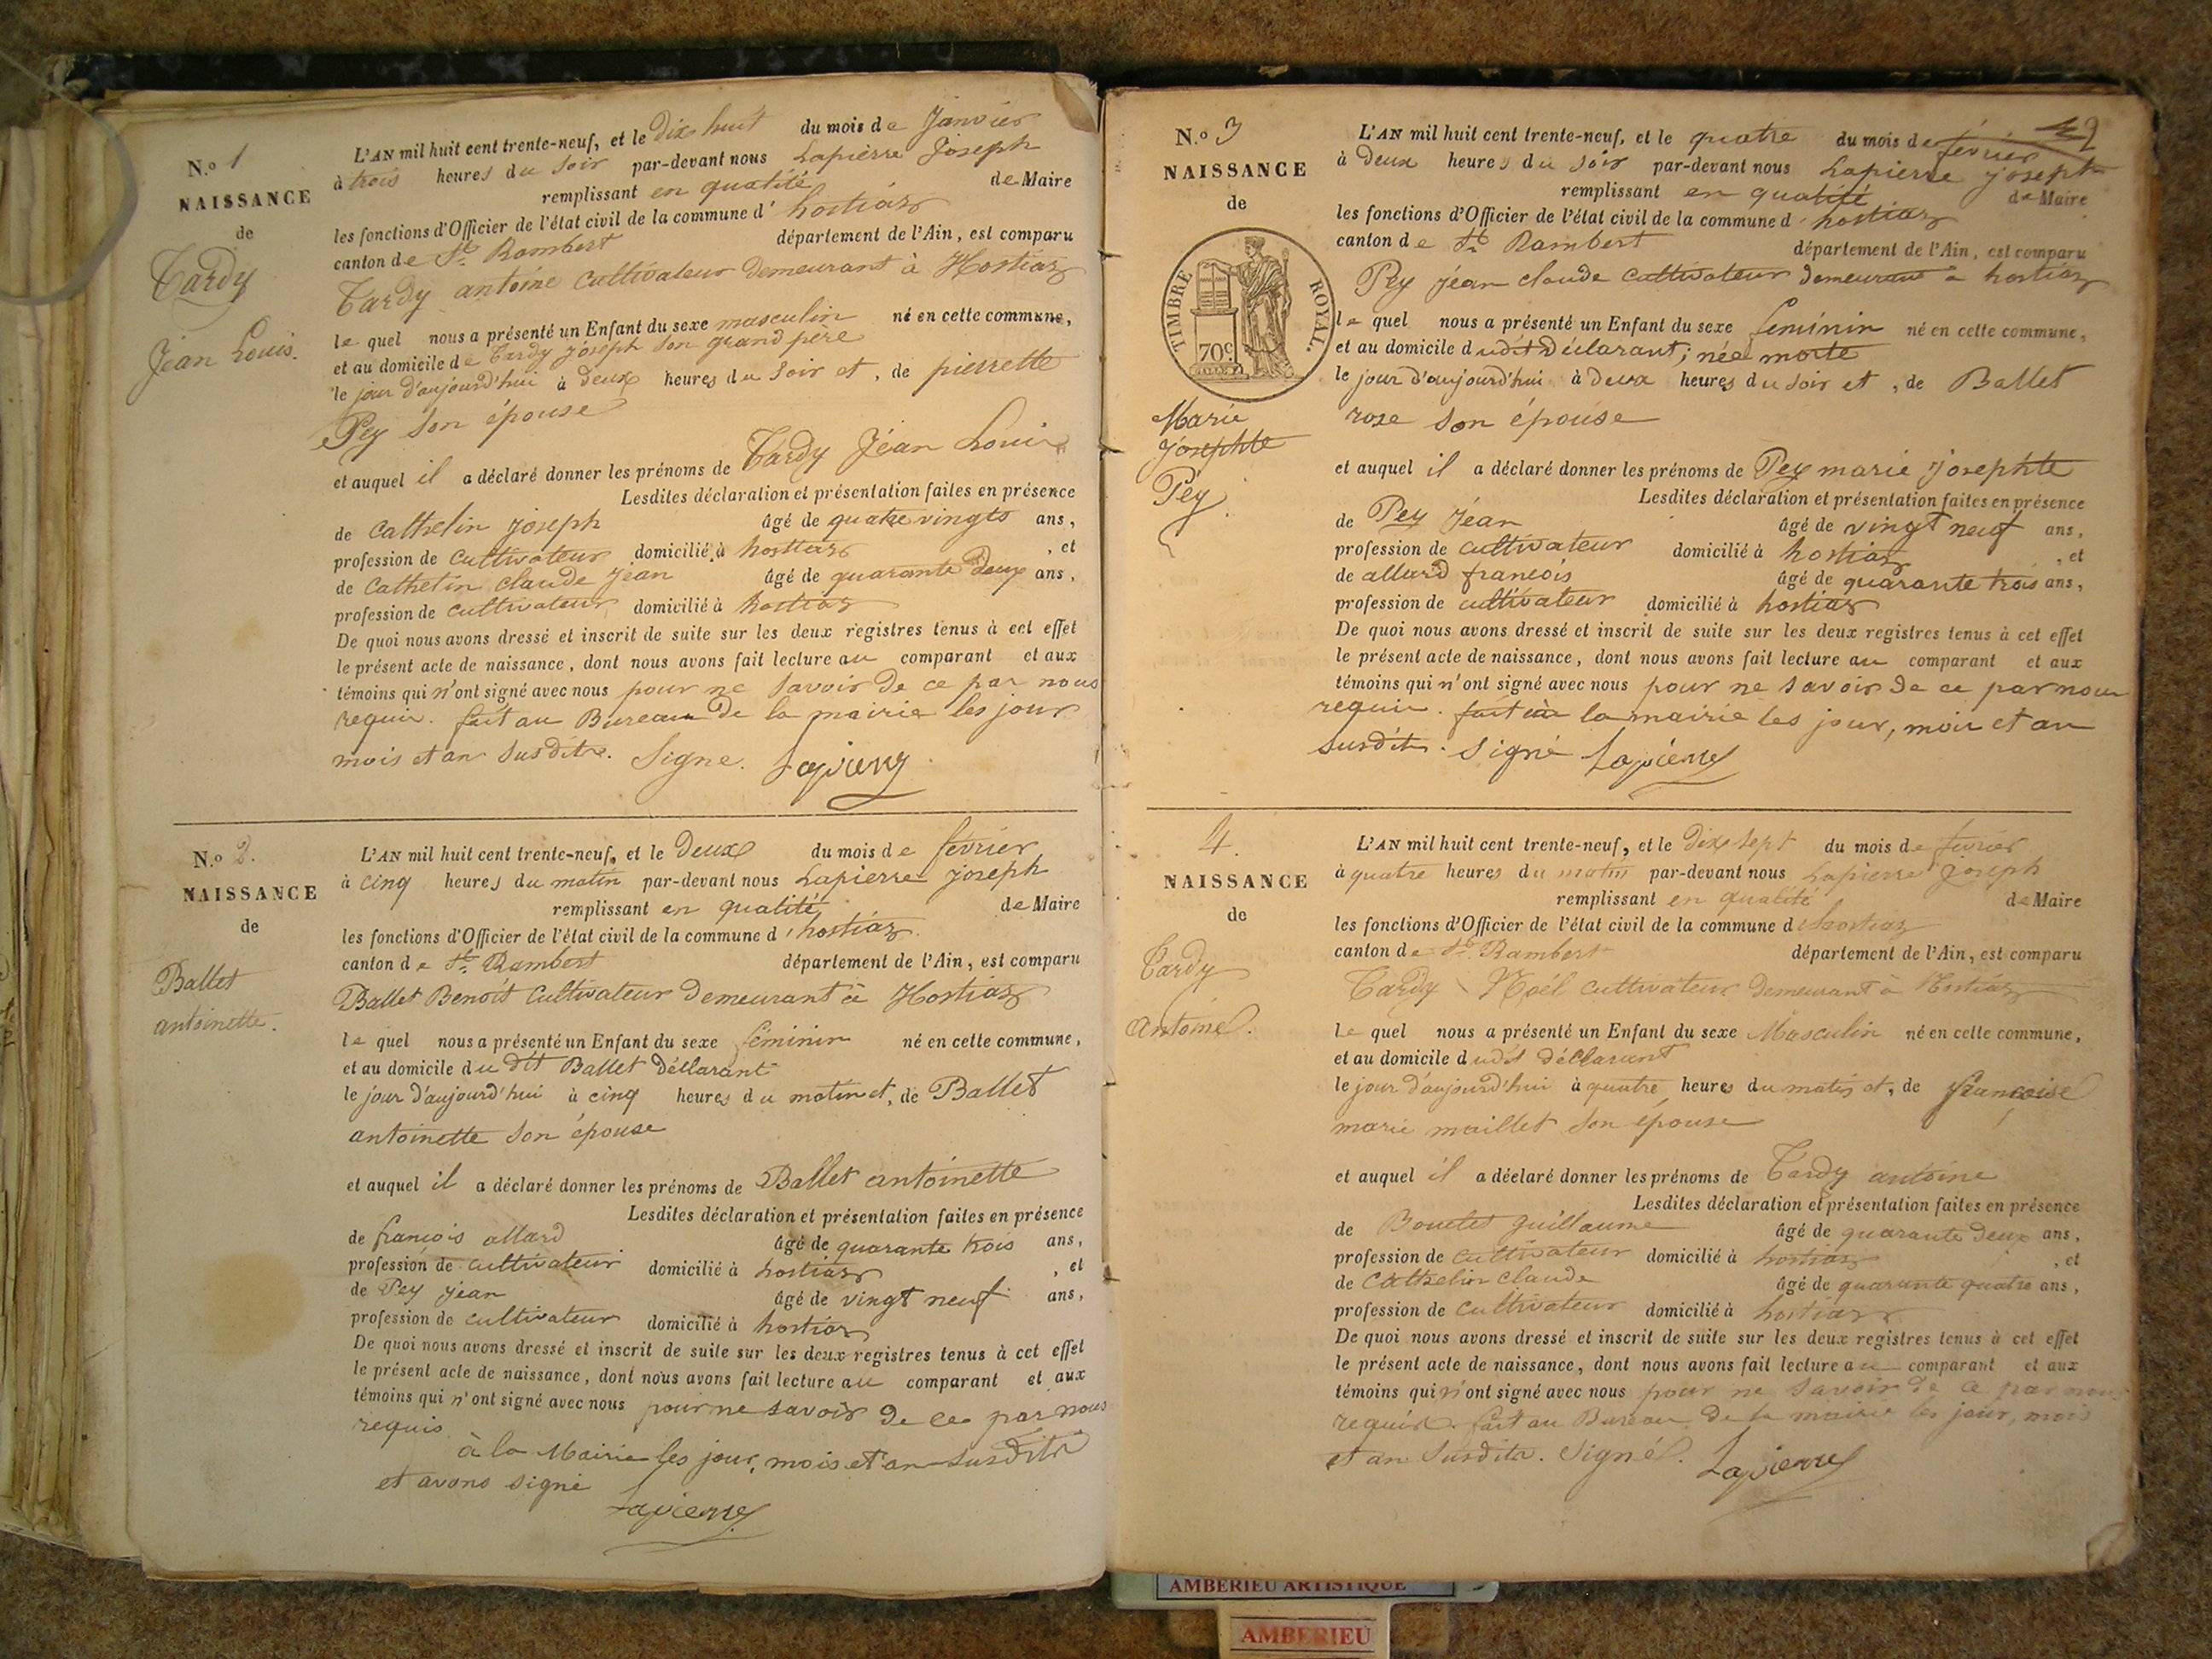 N.o 1
NAISSANCE
de
Tardy
Jean Louis.
L'AN mil huit cent trente-neuf, et le dix huit du mois de Janvier
à trois heures du soir par-devant nous Lapierre Joseph
remplissant en qualité de Maire
les fonctions d'Officier de l'état civil de la commune d' hostiaz
canton de St. Rambert département de l'Ain, est comparu
Tardy antoine cultivateur demeurant à Hostiaz
le quel nous a présenté un Enfant du sexe masculin né en cette commune,
et au domicile de Tardy joseph son grand père
le jour d'aujourd'hui à deux heures du soir et, de pierrette
Pey son épouse
et auquel il a déclaré donner les prénoms de Tardy Jéan Louis
Lesdites déclaration et présentation faites en présence
de Cathelin joseph âgé de quatre vingts ans,
profession de cultivateur domicilié à hostiaz , et
de Cathelin claude jean âgé de quarante deux ans,
profession de cultivateur domicilié à hostiaz
De quoi nous avons dressé et inscrit de suite sur les deux registres tenus à cet effet
le présent acte de naissance, dont nous avons fait lecture au comparant et aux
témoins qui n'ont signé avec nous pour ne savoir de ce par nous
requis. fait au Bureau de la mairie les jour
mois et an susdits. Signe. Lapierre
N.o 2.
NAISSANCE
de
Ballet
antoinette.
L'AN mil huit cent trente-neuf, et le deux du mois de février
à cinq heures du matin par-devant nous Lapierre joseph
remplissant en qualité de Maire
les fonctions d'Officier de l'état civil de la commune d'hostiaz.
canton de St. Rambert département de l'Ain, est comparu
Ballet Benoît cultivateur demeurant à Hostiaz
le quel nous a présenté un Enfant du sexe féminin né en cette commune,
et au domicile du dit Ballet déclarant
le jour d'aujourd'hui à cinq heures du matin et, de Ballet
antoinette son épouse
et auquel il a déclaré donner les prénoms de Ballet antoinette
Lesdites déclaration et présentation faites en présence
de françois allard âgé de quarante trois ans,
profession de cultivateur domicilié à hostiaz , et
de Pey jéan âgé de vingt neuf ans,
profession de cultivateur domicilié à hostiaz
De quoi nous avons dressé et inscrit de suite sur les deux registres tenus à cet effet
le présent acte de naissance, dont nous avons fait lecture au comparant et aux
témoins qui n'ont signé avec nous pour ne savoir de ce par nous
requis
à la Mairie les jour, mois et an susdits
et avons signé
Lapierre
N.o 3
NAISSANCE
de
TIMBRE ROYAL.
70c.
Marie
Josephte
Pey.
L'AN mil huit cent trente-neuf, et le quatre du mois de février
à deux heures du soir par-devant nous Lapierre joseph
remplissant en qualité de Maire
les fonctions d'Officier de l'état civil de la commune d'hostiaz
canton de St. Rambert département de l'Ain, est comparu
Pey jéan claude cultivateur demeurant à hostiaz
le quel nous a présenté un Enfant du sexe feminin né en cette commune,
et au domicile dudit déclarant; née morte
le jour d'aujourd'hui à deux heures du soir et, de Ballet
roze son épouse
et auquel il a déclaré donner les prénoms de Pey marie josephte
Lesdites déclaration et présentation faites en présence
de Pey Jéan âgé de vingt neuf ans,
profession de cultivateur domicilié à hostiaz , et
de allard francois âgé de quarante trois ans,
profession de cultivateur domicilié à hostiaz
De quoi nous avons dressé et inscrit de suite sur les deux registres tenus à cet effet
le présent acte de naissance, dont nous avons fait lecture au comparant et aux
témoins qui n'ont signé avec nous pour ne savoir de ce par nous
requis. fait à la mairie les jour, mois et an
susdits. Signé Lapierre
4.
NAISSANCE
de
Tardy
Antoine.
L'AN mil huit cent trente-neuf, et le dix sept du mois de fevrier
à quatre heures du matin par-devant nous Lapierre Joseph
remplissant en qualité de Maire
les fonctions d'Officier de l'état civil de la commune d'hostiaz
canton de St. Rambert département de l'Ain, est comparu
Tardy Noél cultivateur demeurant à Hostiaz
le quel nous a présenté un Enfant du sexe Masculin né en cette commune,
et au domicile dudit déclarant
le jour d'aujourd'hui à quatre heures du matin et, de françoise
marie maillet son epouse
et auquel il a déclaré donner les prénoms de Tardy antoine
Lesdites déclaration et présentation faites en présence
de guillaume âgé de quarante deux ans,
profession de cultivateur domicilié à hostiaz , et
de Cathelin claude âgé de quarante quatre ans,
profession de cultivateur domicilié à hostiaz
De quoi nous avons dressé et inscrit de suite sur les deux registres tenus à cet effet
le présent acte de naissance, dont nous avons fait lecture au comparant et aux
témoins qui n'ont signé avec nous pour ne savoir de ce par nous
requis. fait au Bureau de la mairie les jour, mois
et an susdits. Signé. Lapierre
AMBERIEU ARTISTIQUE
AMBERIEU